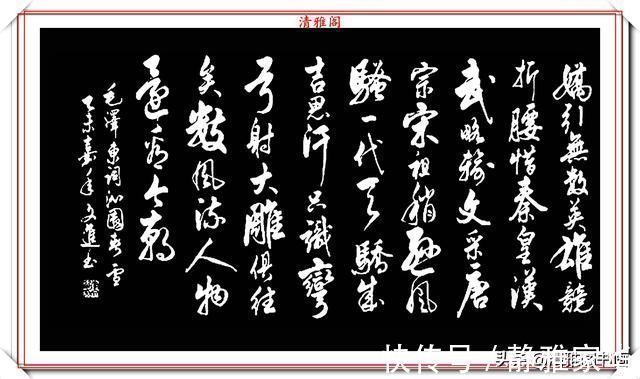 清雅阁
嬌引無數英雄競
折腰惜秦皇漢
武略輸文采唐
宗宋祖稍遜風
騷一代天驕成
吉思汗只識彎
弓射大雕俱往
矣數風流人物
還看今朝
毛澤東詞沁園春雪
乙未嘉年文進書
快传号 / 静雅家